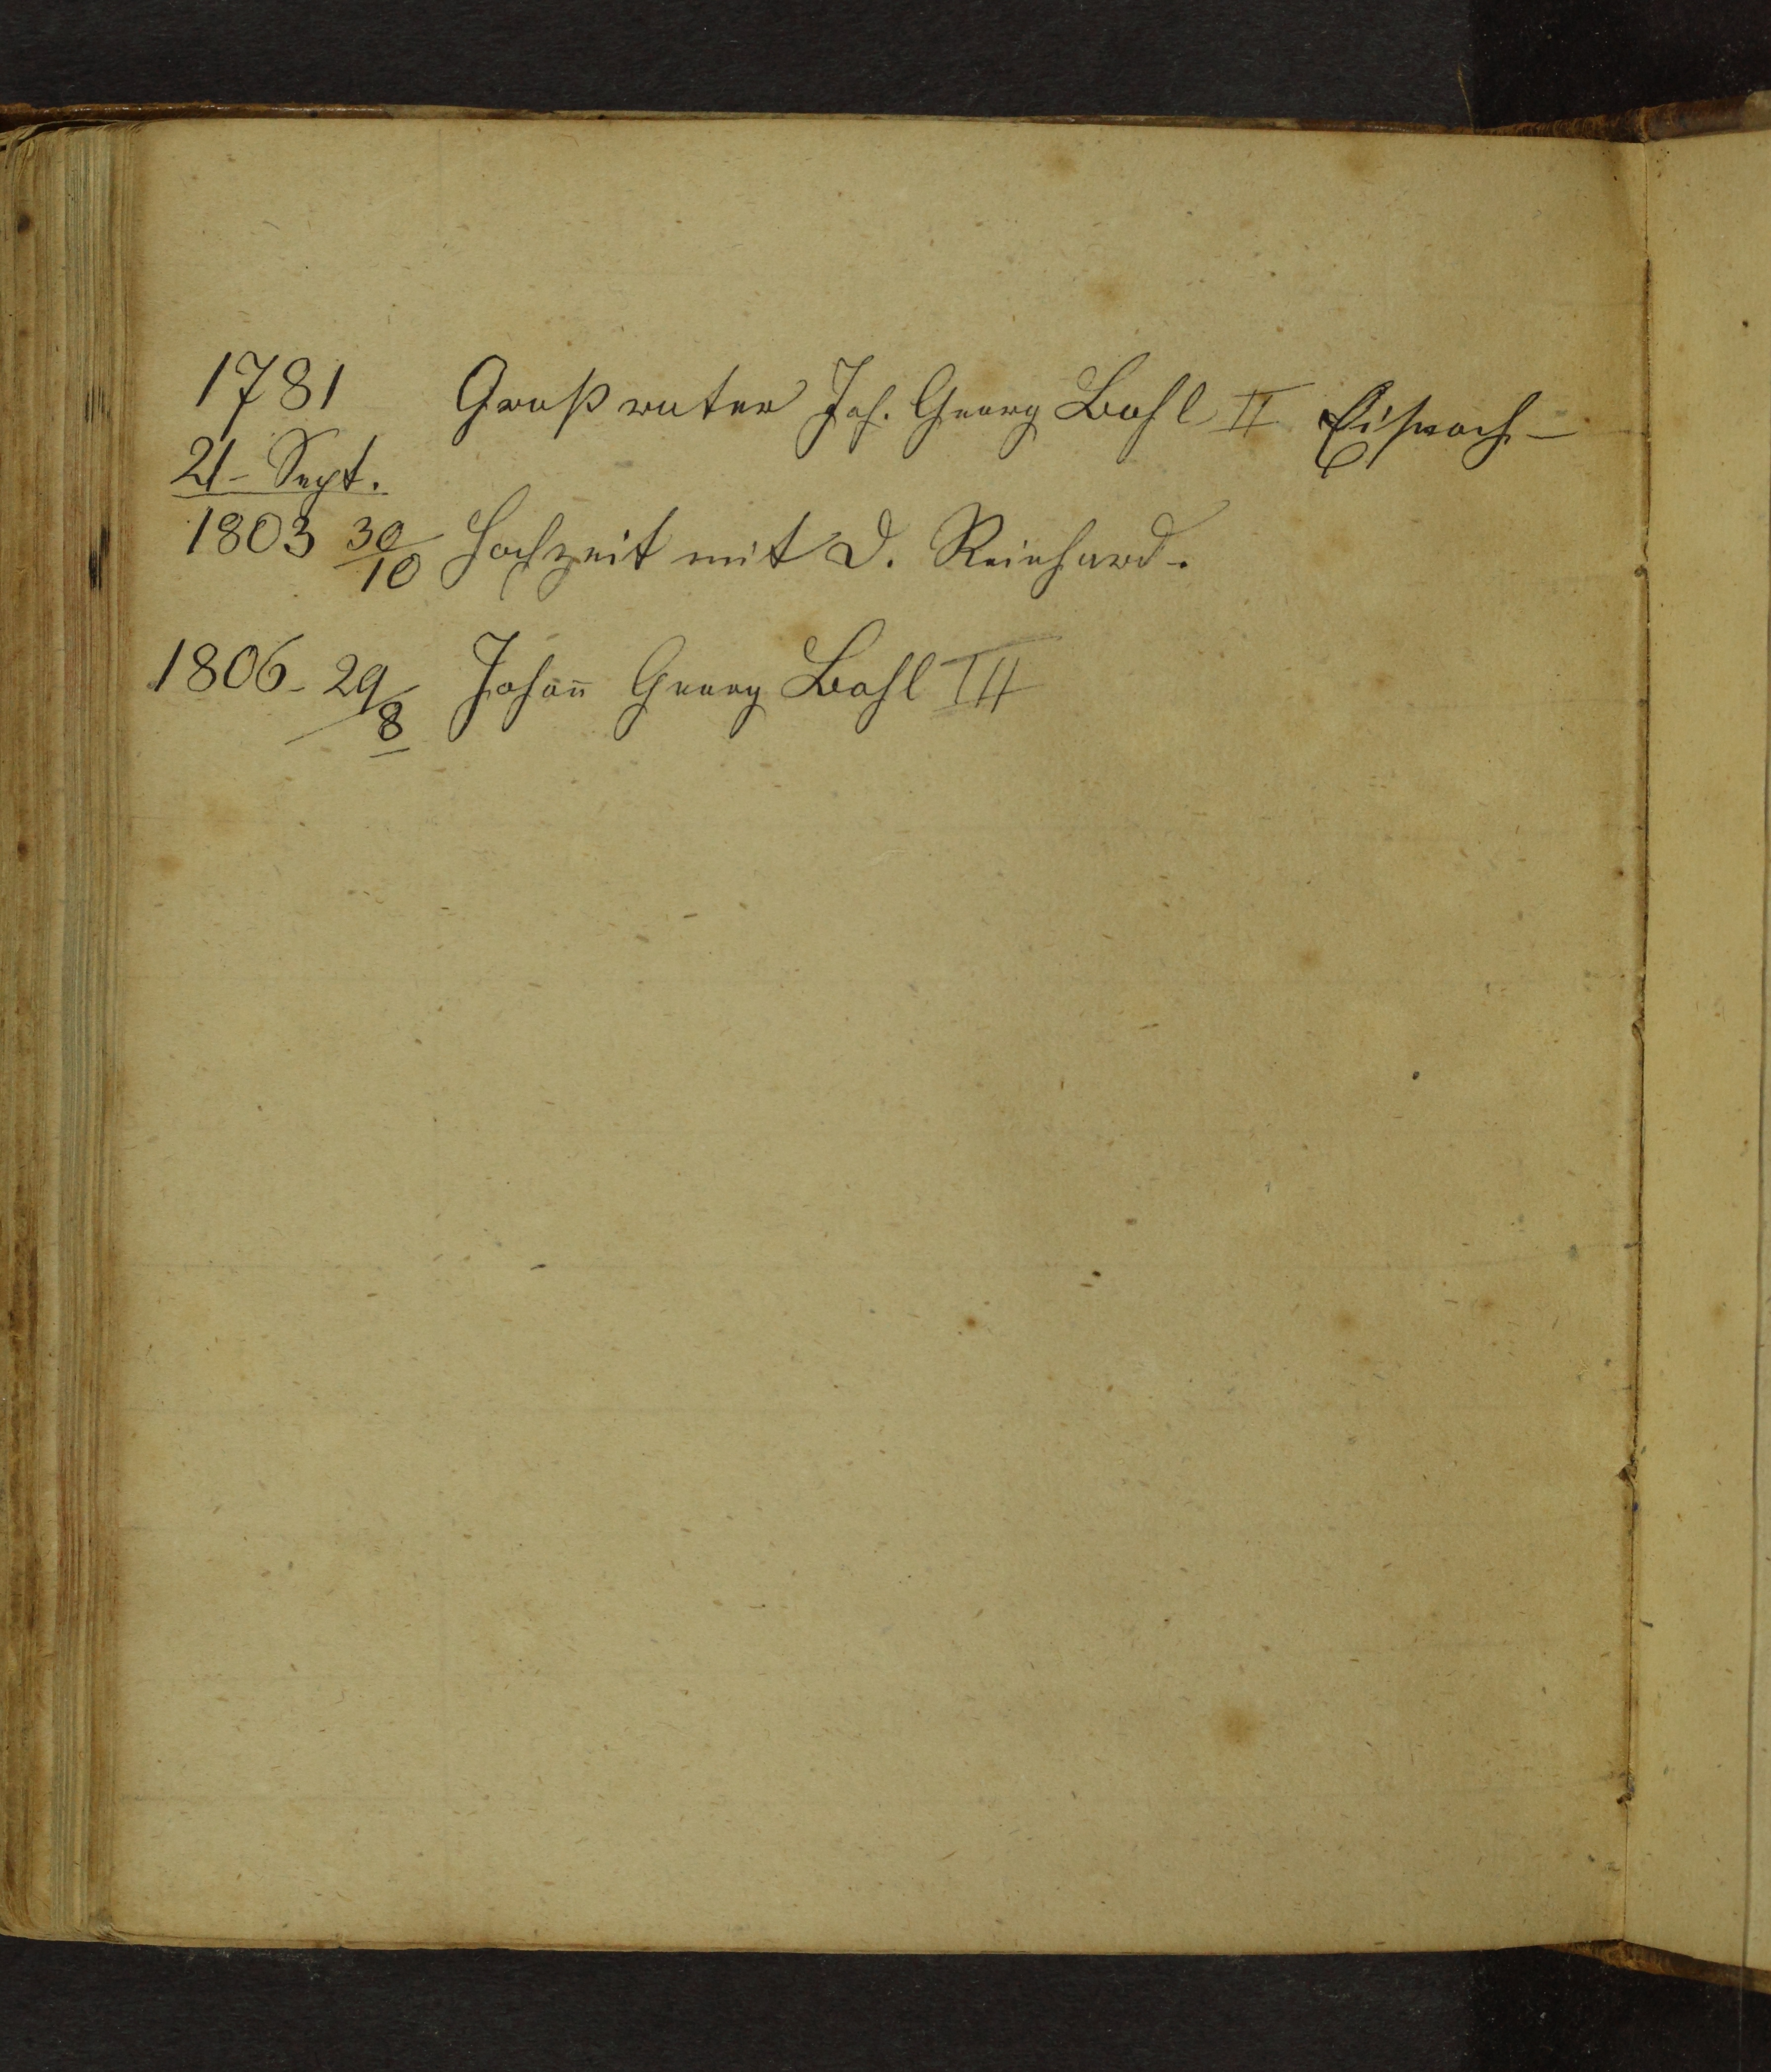 1781 Großvater Joh. Georg Bohl II
21 - Sept.
1803 30/10 Hochzeit mit D. Reinhard.
1806 - 29/8 Johañ Georg Bohl III